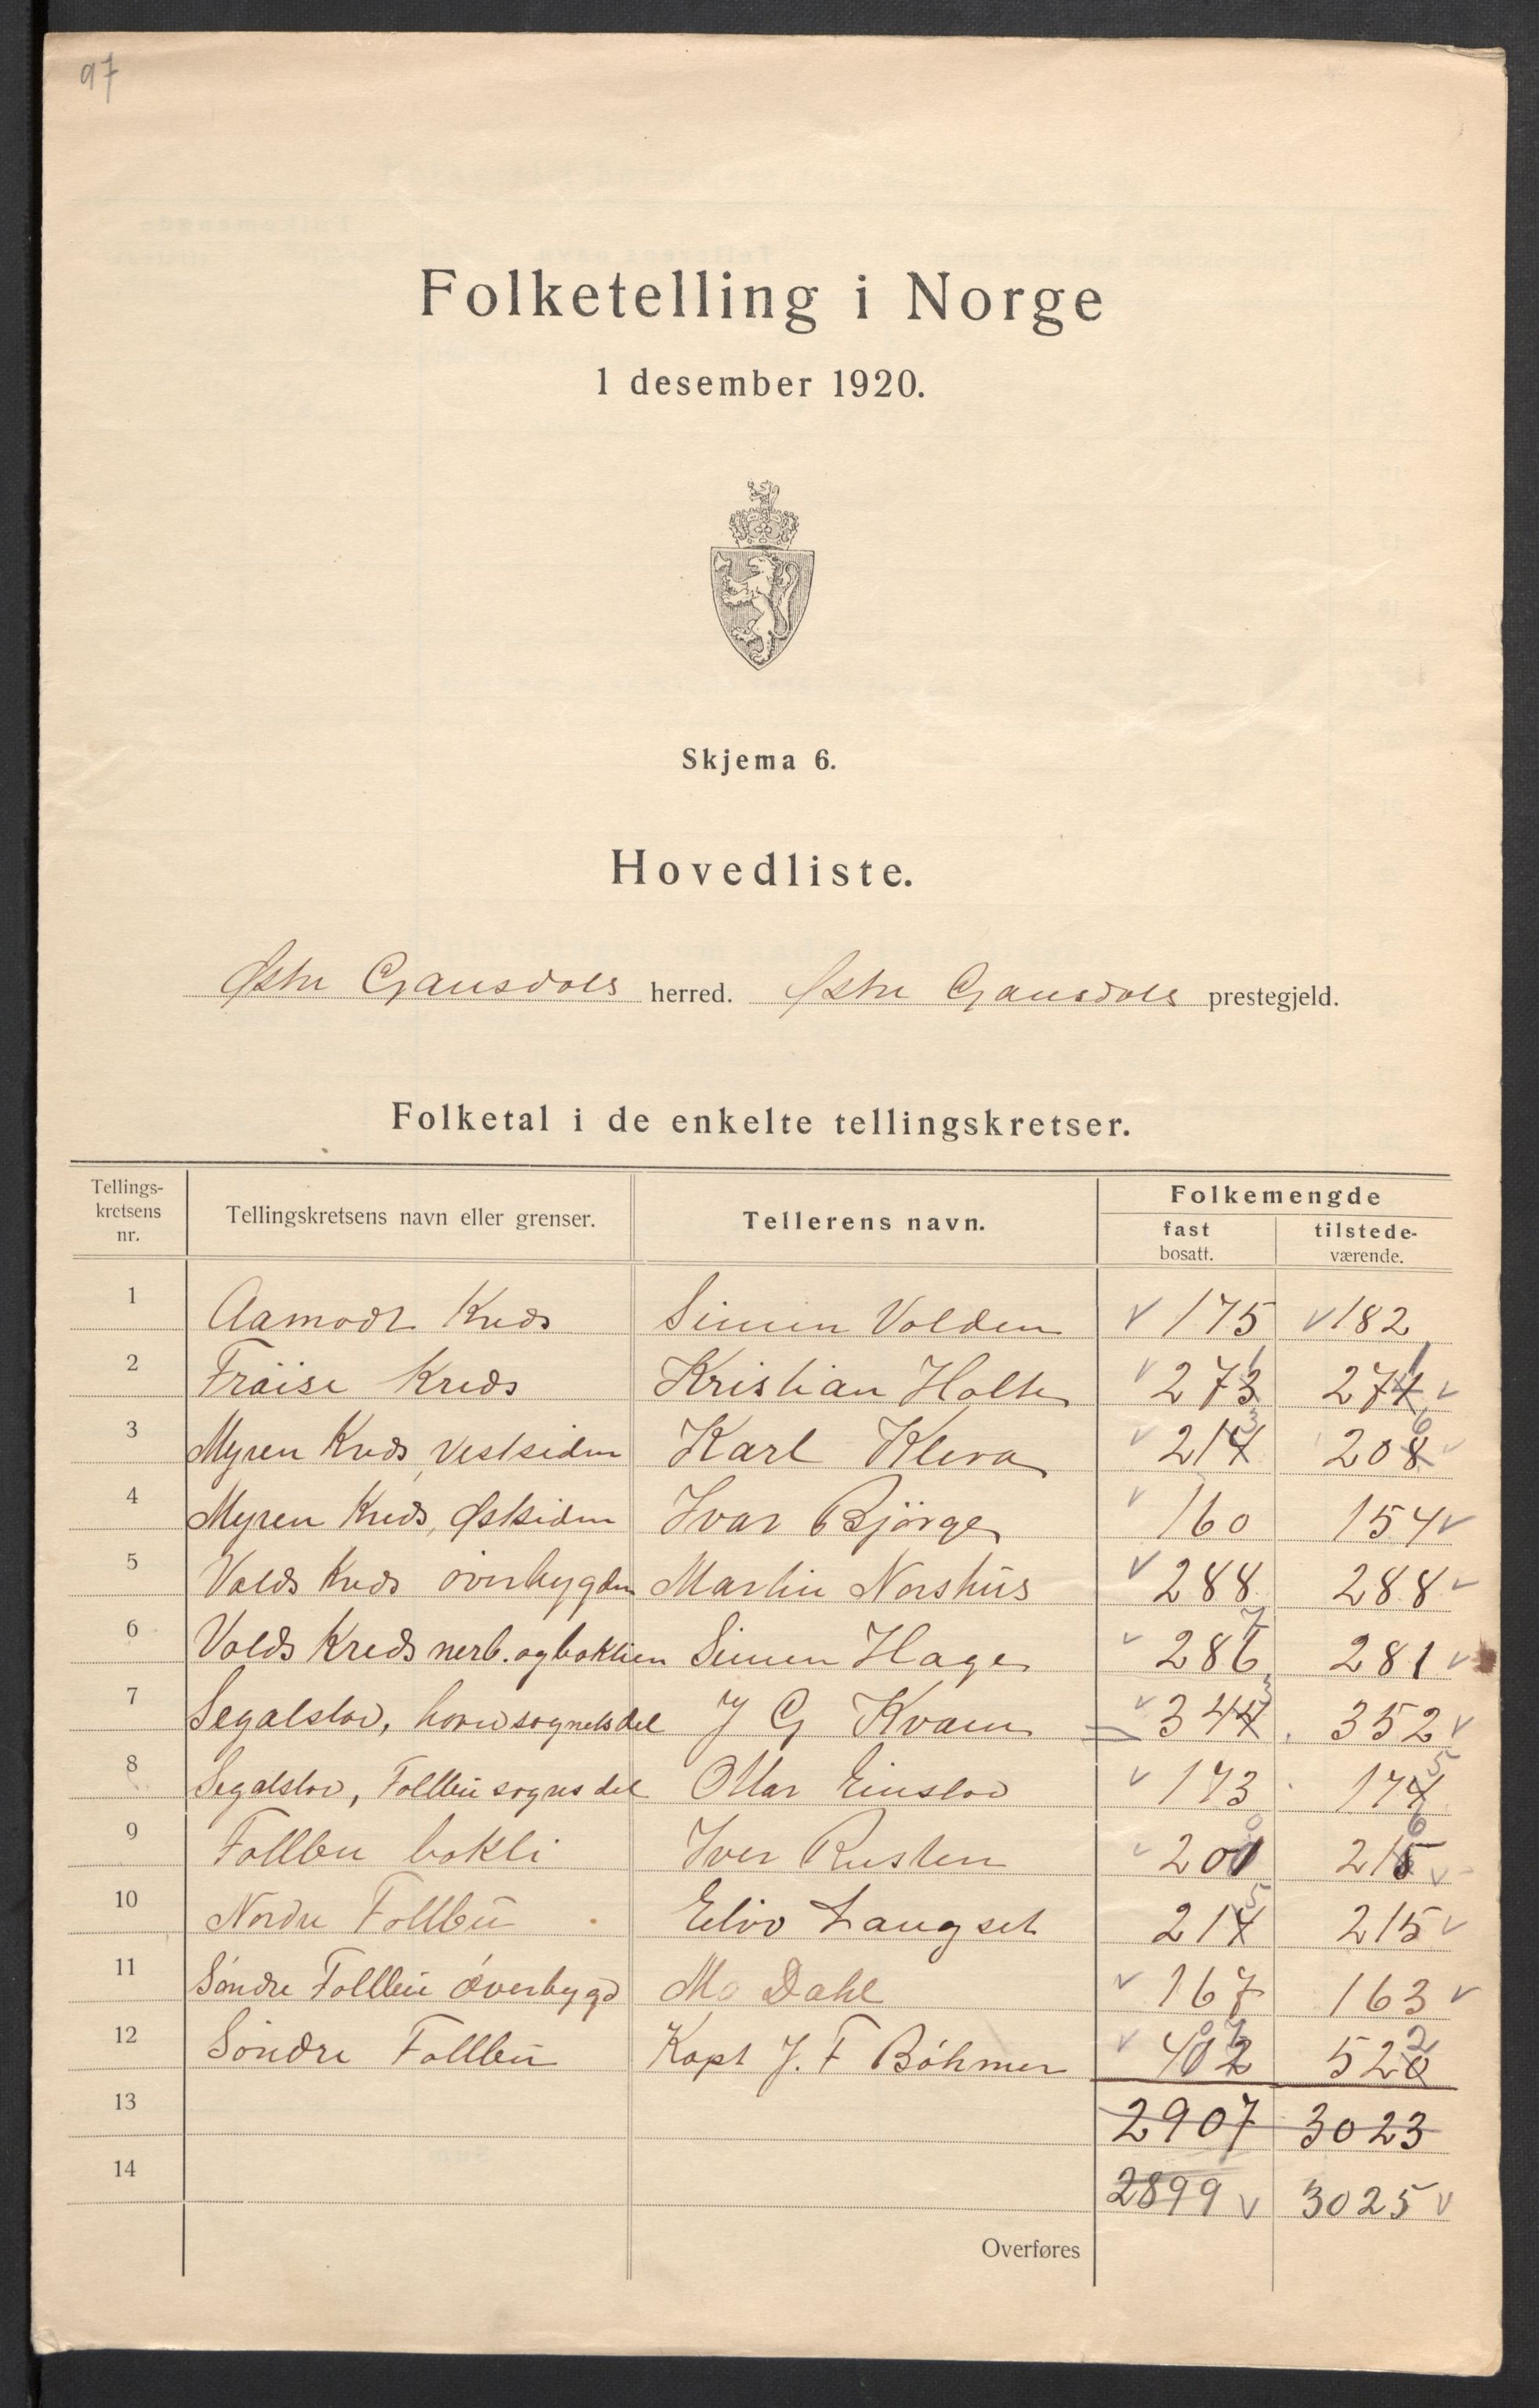 97
Folketelling i Norge
1 desember 1920.
Skjema 6.
Hovedliste.
Østre Gausdals herred. Østre Gausdals prestegjeld.
Folketal i de enkelte tellingskretser.
Tellings-kretsens nr. Tellingskretsens navn eller grenser. Tellerens navn. Folkemengde fast bosatt. tilstede-værende.
1 Aamodt Kreds Simen Volden 175 182
2 Fröise Kreds Kristian Holte 273 1 274 1
3 Myren Kreds, Vestsiden Karl Kleva 214 3 208 6
4 Myren Kreds, Østsiden Ivar Björge 160 154
5 Volds Kreds överbygden Martin Norshus 288 288
6 Volds Kreds nerb. og baklien Simen Hage 286 7 281
7 Segalstad, hovedsognets del J G Kvam 344 3 352
8 Segalstad, Follebu sogns del Ottar Einstad 173 174 5
9 Follebu bakli Iver Rusten 201 0 215 6
10 Nordre Follebu Eliv Langset 214 5 215
11 Söndre Follebu överbygd M. Dahl 167 163
12 Söndre Follebu Kapt J. F Böhmer 412 07 520 2
13 2907 3023
14 2899 3025
Overføres